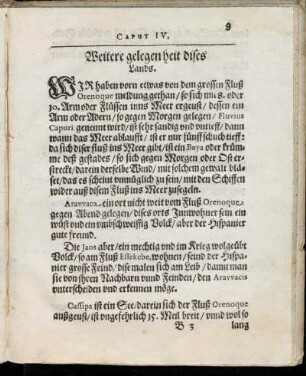 CAPVT IV.
Weitere gelegenheit dises
Lands.
WIR haben vorn etwas von dem grossen Fluß
Orenoque meldung gethan / so sich mit 8. oder
10. Arm oder Flüssen inns Meer ergeust / dessen ein
Arm oder Adern / so gegen Morgen gelegen / Fluvius
Capuri genennt wird / ist sehr sandig vnd vntieff / dann
wann das Meer ablaufft / ist er nur fünff schuch tieff:
da sich diser fluß ins Meer gibt / ist ein Baya oder krüm-
me deß gestades / so sich gegen Morgen oder Ost er-
streckt / darein derselbe Wind / mit solchem gewalt blä-
set / das es scheint vnmüglich zu sein / mit den Schiffen
wider auß disem Fluß ins Meer zusegeln.
Aravvaca ein ort nicht weit vom Fluß Orenoque,
gegen Abend gelegen / dises orts Innwohner sein ein
wüst vnd ein vmbschweiffig Volck / aber der Hispanier
gute freund.
Die Jaos aber / ein mechtig vnd im Krieg wolgeübt
Volck / so am Fluß Essekebe, wohnen / seind der Hispa-
nier grosse Feind / dise malen sich am Leib / damit man
sie von ihren Nachbarn vnnd Feinden / den Aravvacis
vnterscheiden vnd erkennen möge.
Cassipa ist ein See / darein sich der Fluß Orenoque
außgeust / ist vngefehrlich 15. Meil breit / vnnd wol so
B 3 lang